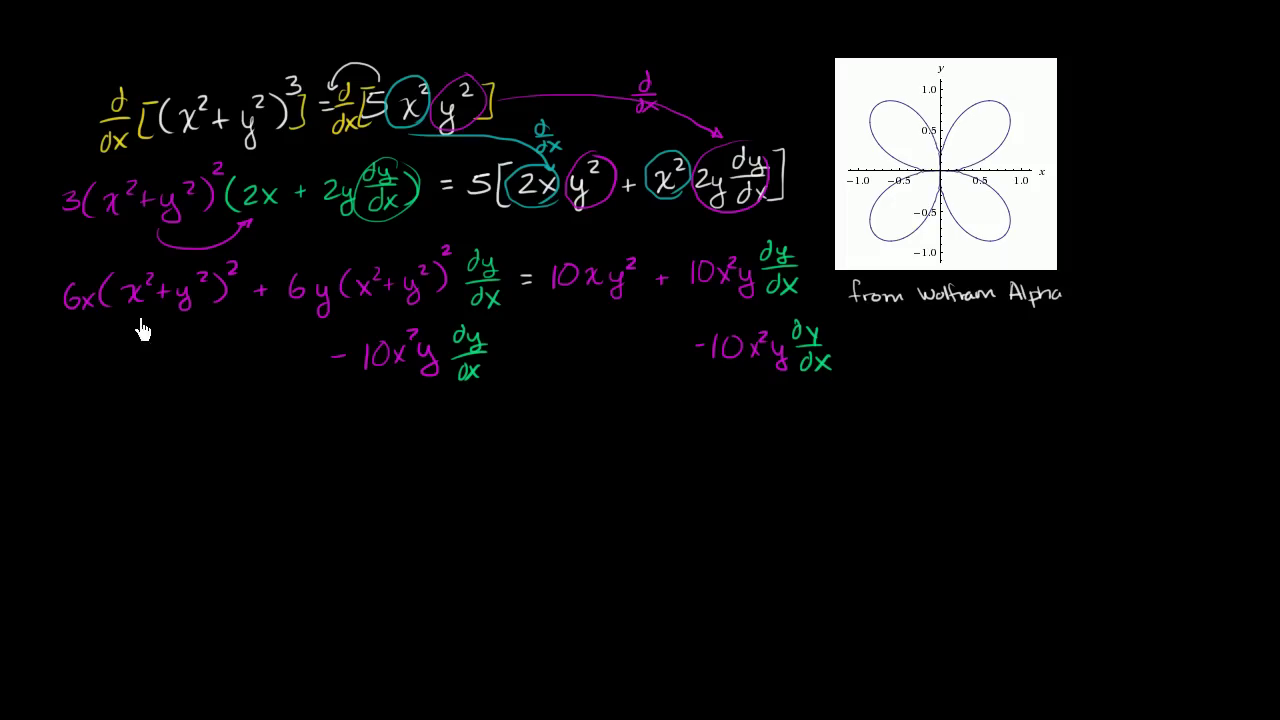 d/dx [(x² + y²)³] = d/dx [5 x² y²]
d/dx
d/dx
3(x² + y²)² (2x + 2y dy/dx) = 5[2x y² + x² 2y dy/dx]
6x(x² + y²)² + 6y(x² + y²)² dy/dx = 10xy² + 10x²y dy/dx
- 10x²y dy/dx - 10x²y dy/dx
y
1.0
0.5
-1.0 -0.5 0.5 1.0 x
-0.5
-1.0
from Wolfram Alpha